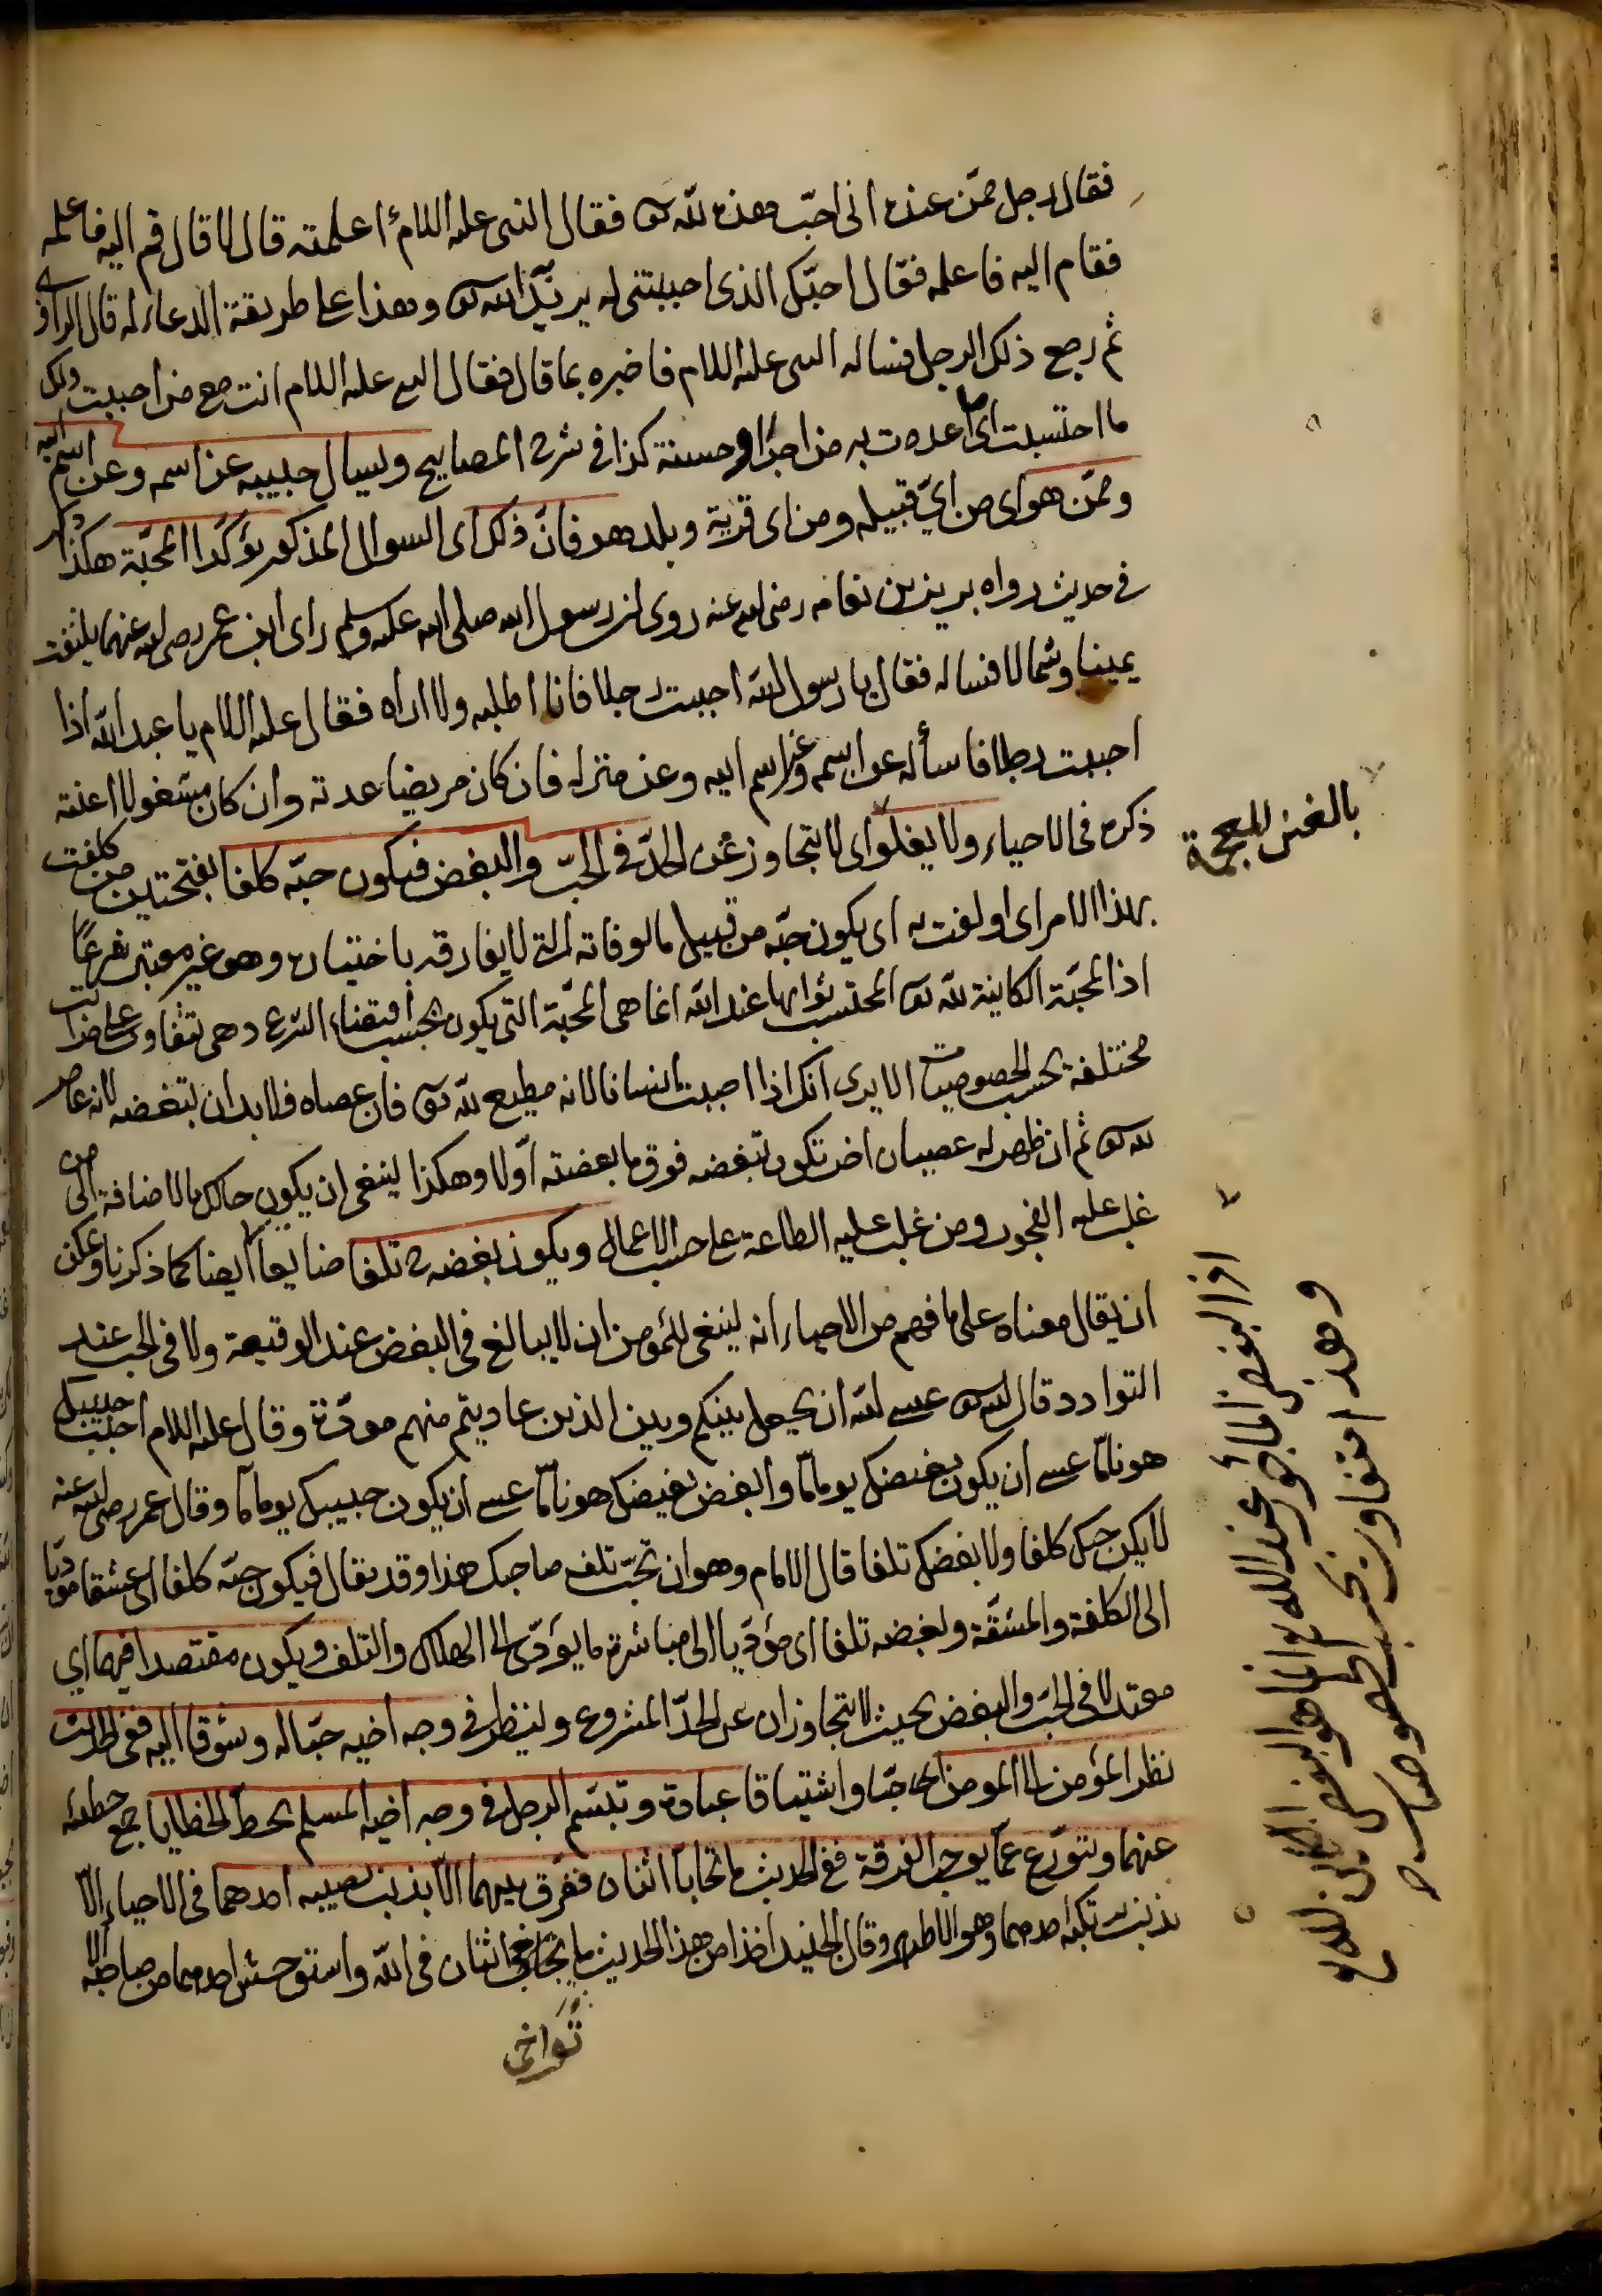 فقال رجل ممّن عنده انى احبّ هذه للّه تعالى فقال النبى عليه اللام ءاعلمته قال لا قال قم اليه فاعلمه
فقام اليه فاعلمه فقال احبّك الذى احببتنى له يريد الله تعالى وهذا على طريقة الدعاء له قال الراوى
ثم رجع ذلك الرجل فساله النبى عليه اللام فاخبره بما قال فقال النبى عليه اللام انت مع من احببت ولك
ما احتسبت اى اعددت به من اجرا وحسنة كذا فى شرح المصابيح وليسال حبيبه عن اسمه وعن اسم ابيه
وممّن هو اى من اىّ قبيله ومن اى قرية وبلد هو فانّ ذلك اى السوال المذكور يؤكّدا المحبّة هكذا ذكر
فى حديث رواه يزيد بن نعامه رضى الله عنه روى ان رسول الله صلى الله عليه وسلم راى ابن عمر رضى الله عنهما يلتفت
يمينا وشمالا فساله فقال يا رسول اللّه احببت رجلا فانا اطلبه ولا اراه فقال عليه اللام يا عبد اللّه اذا
احببت رجلا فاسأله عن اسمه وعن اسم ابيه وعن منزله فان كان مريضا عدته وان كان مشغولا اعنته
ذكره فى الاحياء ولا يغلوا اى لا يتجاوز عن الحدّ فى الحبّ والبغض فيكون حبّه كلفا بفتحتين من كلفت
بهذا الامر اى اولفت به اى يكون حبّه من قبيل مالوفاته التى لا يفارقه باختياره وهو غير معتبر شرعًا
اذ المحبّة الكاينة للّه تعالى المحتسب ثوابها عند اللّه انما هى المحبّة التى يكون بحسب اقتضاء الشرع وهى تتفاوت على مراتب
مختلفة بحسب الخصوصيات الا يرى انك اذا احببت انسانا لانه مطيع للّه تعالى فان عصاه فلا بد ان تبغضه لانه عاص
لله تعالى ثم ان ظهر له عصيان اخر تكون تبغضه فوق ما بغضته اوّلا وهكذا ينبغى ان يكون حالك بالاضافة الى من
غلب عليه الفجور ومن غلب عليه الطاعة على حسب الاعمال ويكون بغضه تلفا ضايعا ايضا كما ذكرنا ويمكن
ان يقال معناه على ما فهم من الاحياء انه ينبغى للمؤمن ان لا يبالغ فى البغض عند الوقيعة ولا فى الحب عند
التوادد قال الله تعالى عسى اللّه ان يجعل بينكم وبين الذين عاديتم منهم مودّة وقال عليه اللام احبب حبيبك
هونا مّا عسى ان يكون بغيضك يوما مّا وابغض بغيضك هونا مّا عسى ان يكون حبيبك يوما مّا وقال عمر رضى الله عنه
لا يكن حبك كلفا ولا بغضك تلفا قال الامام وهو ان تحبّ تلف صاحبك هذا وقد يقال فيكون حبّه كلفا اى عشقا مؤديا
الى الكلفة والمشقّة وبغضه تلفا اى مؤدّيا الى مباشرة ما يؤدّى الى الهلاك والتلف ويكون مقتصدا فيهما اى
معتدلا فى الحبّ والبغض بحيث لا يتجاوزان عن الحدّ المشروع ولينظر فى وجه اخيه حبّا له وشوقا اليه ففى الحديث
نظر المؤمن الى المومن اى حبّا واشتياقا عبادة وتبسّم الرجل فى وجه اخيه المسلم يحطّ الخطايا جمع خطيئه
عنهما ويتورّع عمّا يوجب الفرقة ففى الحديث ما تحابّا اثنان ففرّق بينهما الّا بذنب يصيبه احدهما فى الاحياء الّا
بذنب يرتكبه احدهما وهو الاظهر وقال الجنيد اخذا من هذا الحديث ما تواخى اثنان فى اللّه واستوحش احدهما من صاحبه الا
تواخى
بالغين المعجمة
اذ البغض المأجور عند الله تعالى انما هو البغض الكائن لله تع
وهذا متفاوت بحسب الخصوصيات ص